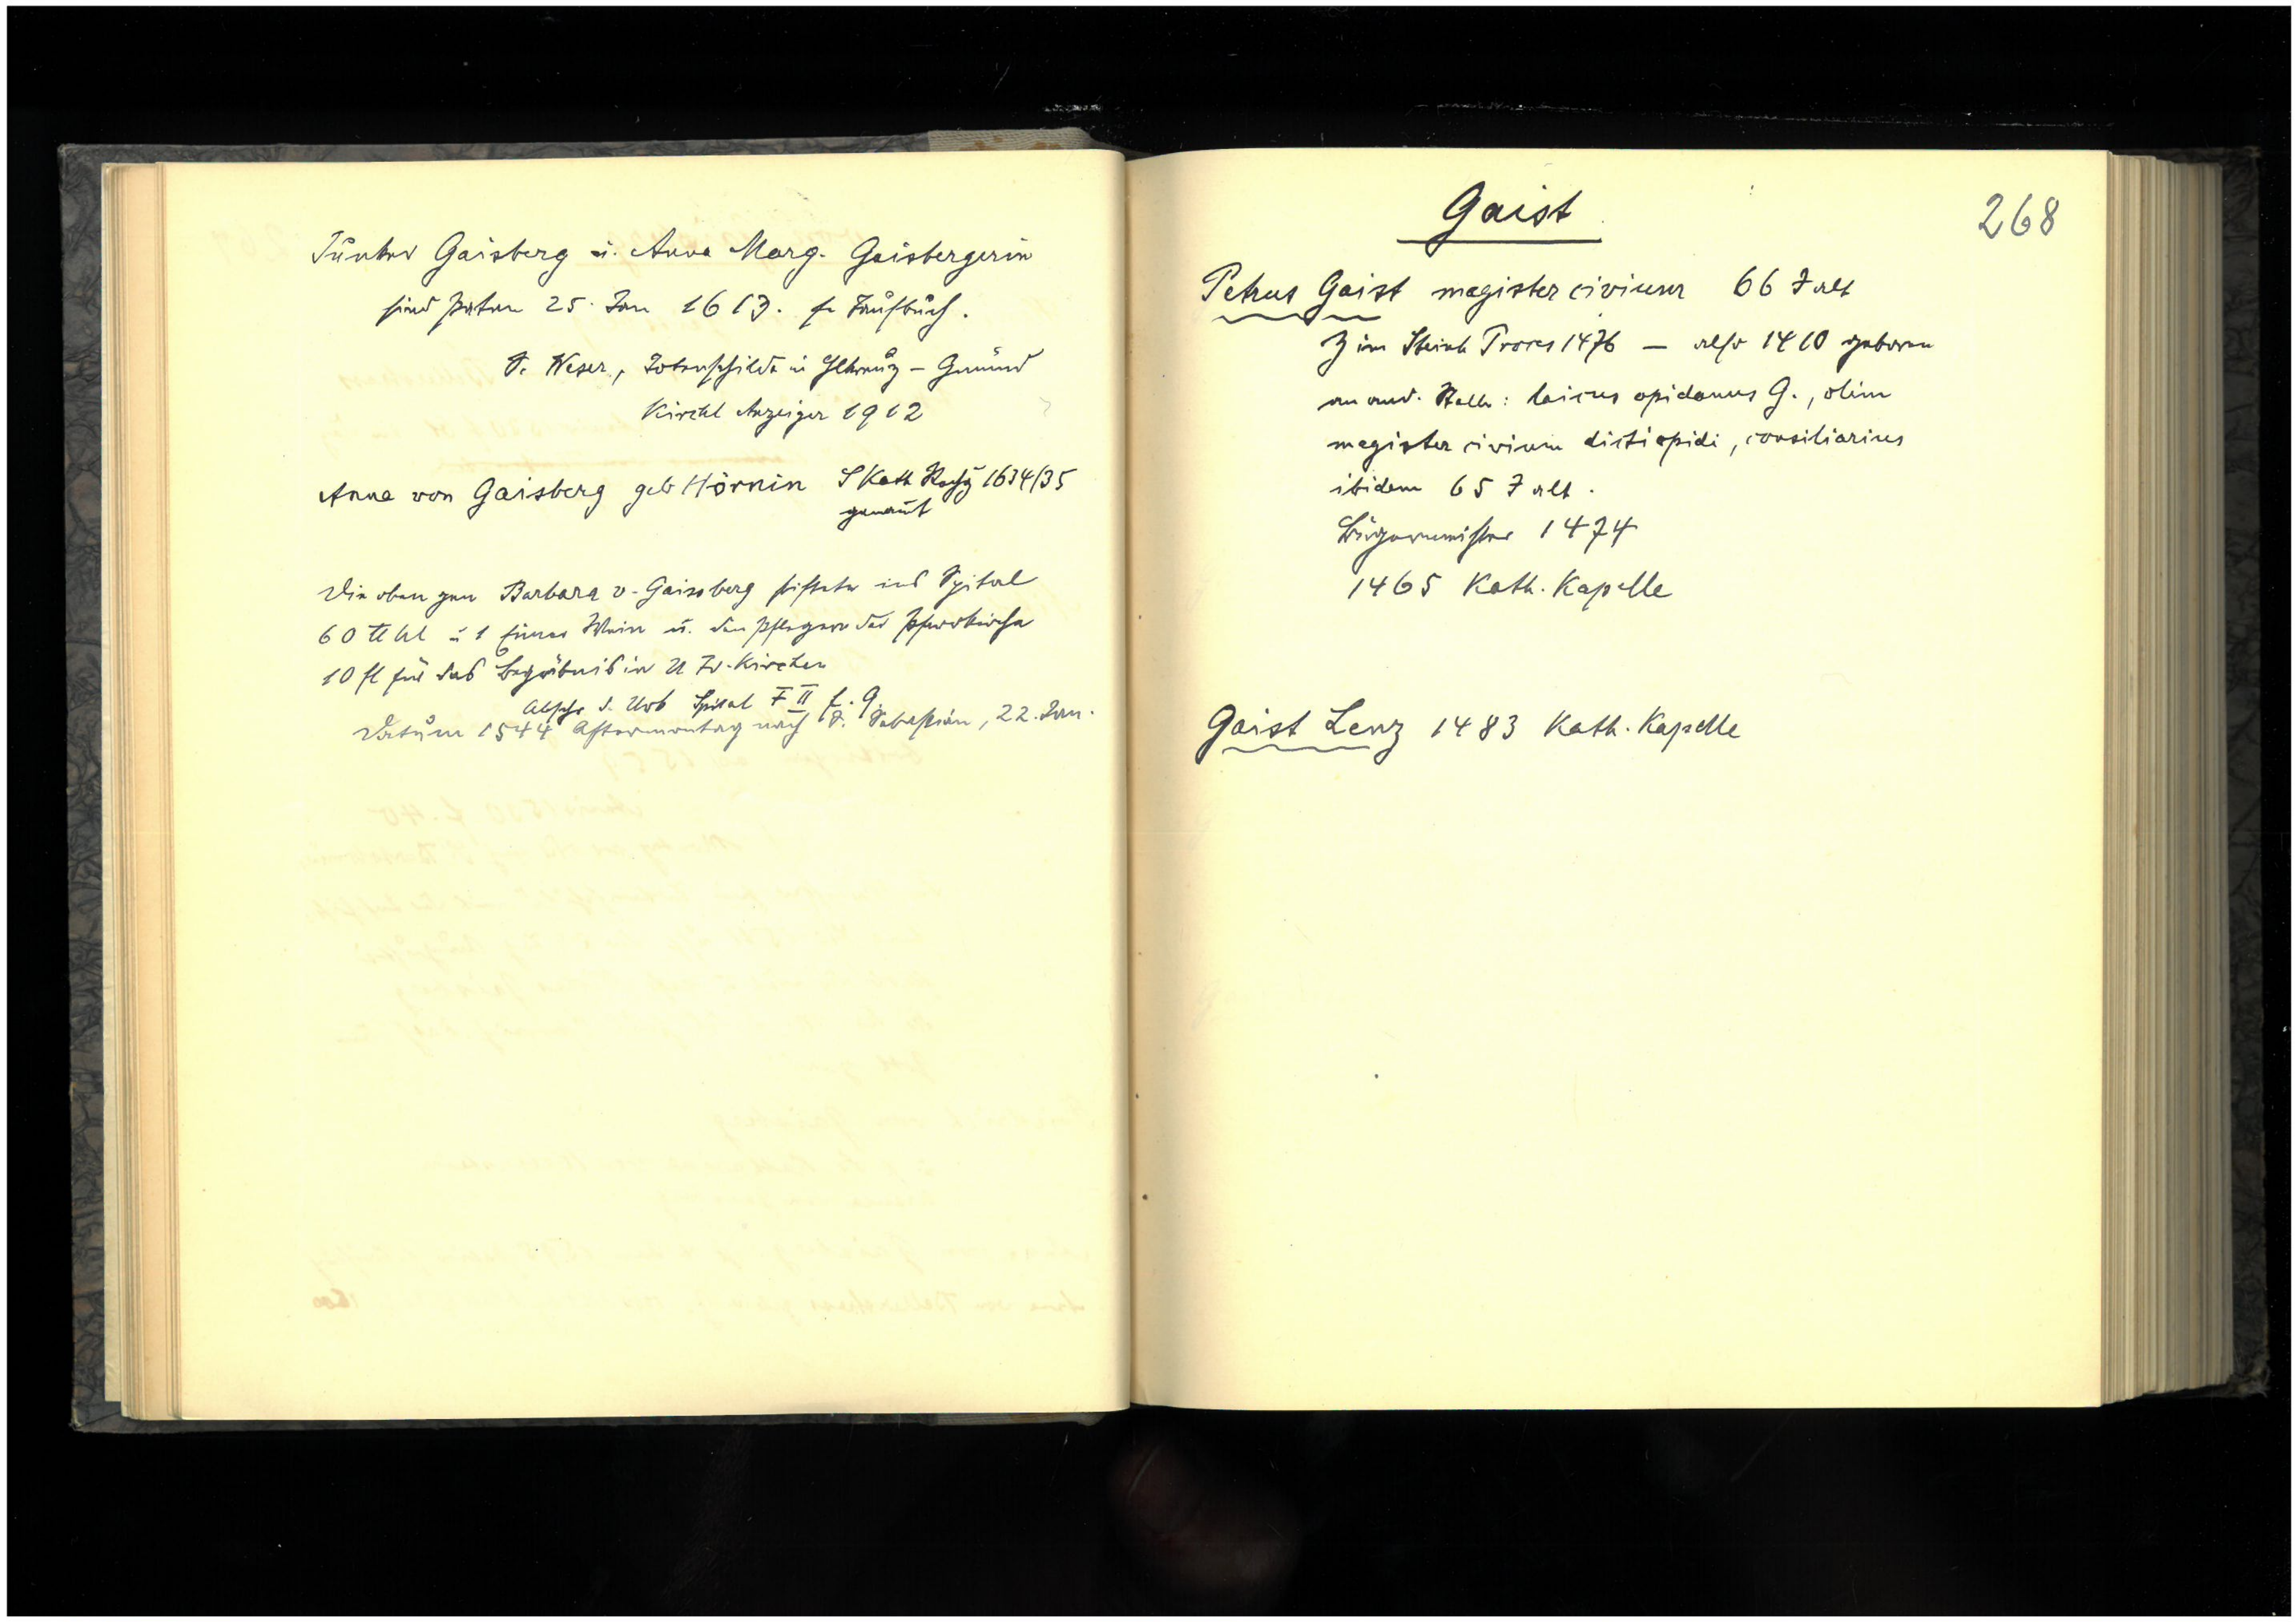 Junker Gaisberg u. Anna Marg. Gaisbergerin
sind Paten 25. Jan 1613. fr Taufbuch.
S. Weser, Totenschilde in Hlkreuz - Gmünd
Kirchl Anzeiger 1912
Anna von Gaisberg geb Hörnin S Kath Rechg 1634/35
genannt
Die oben gen Barbara v. Gaissberg stiftete ins Spital
60 ℔ hl u 1 Eimer Wein u. den Pflegern der Pfarrkirche
10 fl für das Begräbnis in U Fr. Kirchen
Abschr d. Urb Spital F II f. 9.
Datum 1544 Aftermontag nach S. Sebastian, 22. Jan.
268
Gaist
Petrus Gaist magister civium 66 J alt
Z im Proces 1476 — also 1410 geboren
an and. Stelle: laicus opidanus G., olim
magister civium dicti opidi, consiliarius
ibidem 65 J alt.
Bürgermeister 1474
1465 Kath. Kapelle
Gaist Lenz 1483 Kath. Kapelle